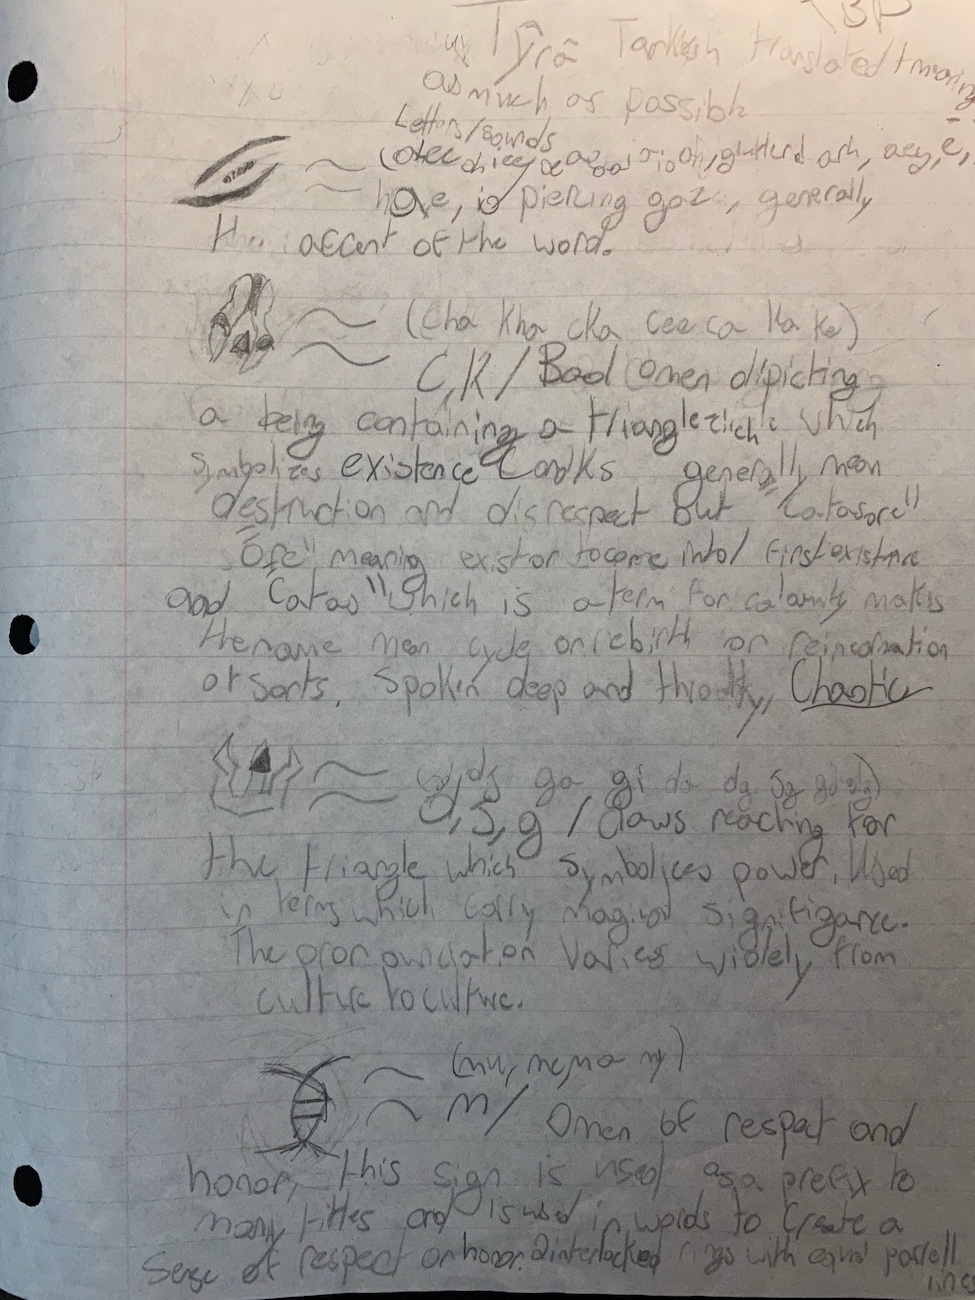 BP
Tŷrā Tarkesh translated + meaning
as much as possible
Letters/sounds
ash, aey, ē,
is piercing gaze, generally
accent of the word.
(Cha Kha cka cee ca Ka Ke)
C, K / Bad omen dipicting
a being containing a triangle which
symbolizes existence C and Ks generally mean
destruction and disrespect But "Catasore"
meaning exist or to come into/first existence
and Catas" which is a term for calamity makes
the name mean cycle or rebirth or reincarnation
of sorts. Spoken deep and throatty, Chaotic
ga gi da dg Sg
d, S, g / Claws reaching for
the triangle which Symbolices power. Used
in terms which carry magical signifigance.
The pronounciation varies widely from
culture to culture.
(mu, me, ma my)
m / Omen of respect and
honor, this sign is used as a prefix to
many titles and is used in words to create a
Sense of respect or honor. 2 interlocked rings with equal parrell
lines